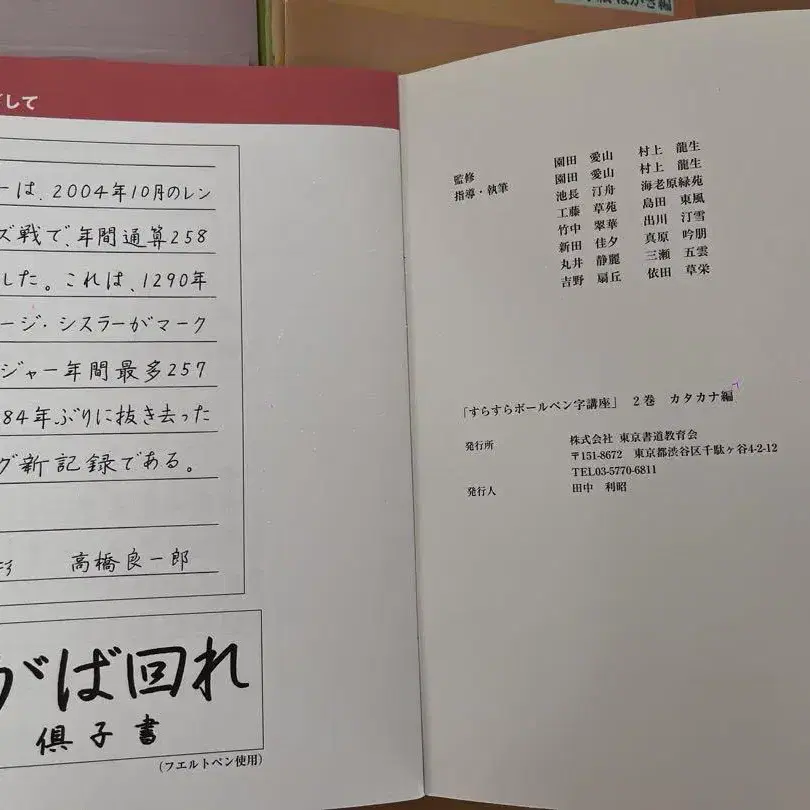 はがき編
して
ーは、2004年10月のレン
ズ戦で、年間通算258
した。これは、1290年
ージ・シスラーがマーク
ジャー年間最多257
84年ぶりに抜き去った
グ新記録である。
高橋良一郎
がば回れ
倶子書
（フエルトペン使用）
監修 園田 愛山 村上 龍生
指導・執筆 園田 愛山 村上 龍生
池長 汀舟 海老原緑苑
工藤 草苑 島田 東風
竹中 翠華 出川 汀雪
新田 佳夕 真原 吟朋
丸井 静麗 三瀬 五雲
吉野 扇丘 依田 草栄
「すらすらボールペン字講座」 2巻 カタカナ編
発行所 株式会社 東京書道教育会
〒151-8672 東京都渋谷区千駄ヶ谷4-2-12
TEL03-5770-6811
発行人 田中 利昭